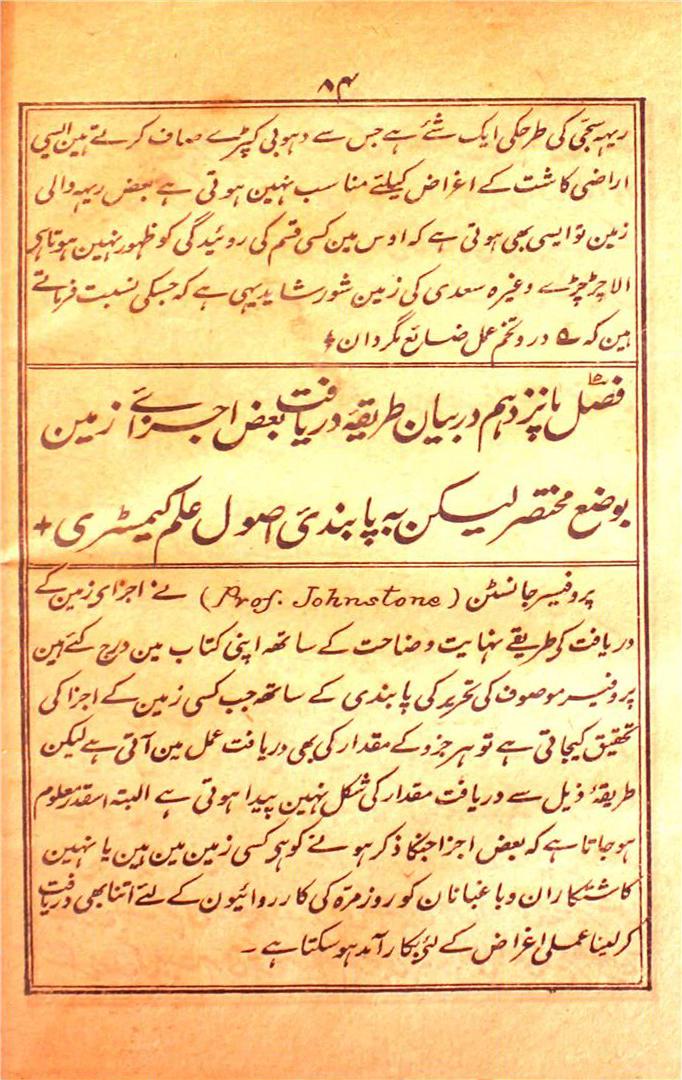 ۸۴
ریہہ سجّی کی طرحکی ایک شے ہے جس سے دہوبی کپڑے صاف کرتے ہین ایسی
اراضی کاشت کے اغراض کیلئے مناسب نہین ہوتی ہے بعض ریہہ والی
زمین تو ایسی بھی ہوتی ہے کہ اوس مین کسی قسم کی روئیدگی کو ظہور نہین ہوتا ہی
الا چڑچڑے وغیرہ سعدی کی زمین شور شاید یہی ہے کہ جسکی نسبت فرماتے
ہین کہ ؎ درو تخم عمل ضائع مگردان +
فصل پانزدہم در بیان طریقۂ دریافت بعض اجزائے زمین
بوضع مختصر لیکن بہ پابندئ اصول علم کیمسٹری +
پروفیسر جانسٹن (Prof. Johnstone) نے اجزای زمین کے
دریافت کی طریقے نہایت وضاحت کے ساتھہ اپنی کتاب مین درج کئے ہین
پروفیسر موصوف کی تحریر کی پابندی کے ساتھہ جب کسی زمین کے اجزا کی
تحقیق کیجاتی ہے تو ہر جزو کے مقدار کی بھی دریافت عمل مین آتی ہے لیکن
طریقۂ ذیل سے دریافت مقدار کی شکل نہین پیدا ہوتی ہے البتہ اسقدر معلوم
ہوجاتا ہے کہ بعض اجزا جنکا ذکر ہونے کو ہی کسی زمین مین ہین یا نہین
کاشتکاران وباغبانان کو روزمرّہ کی کارروائیون کے لئے اتنا بھی دریافت
کرلینا عملی اغراض کے لئی بکار آمد ہوسکتا ہے ۔